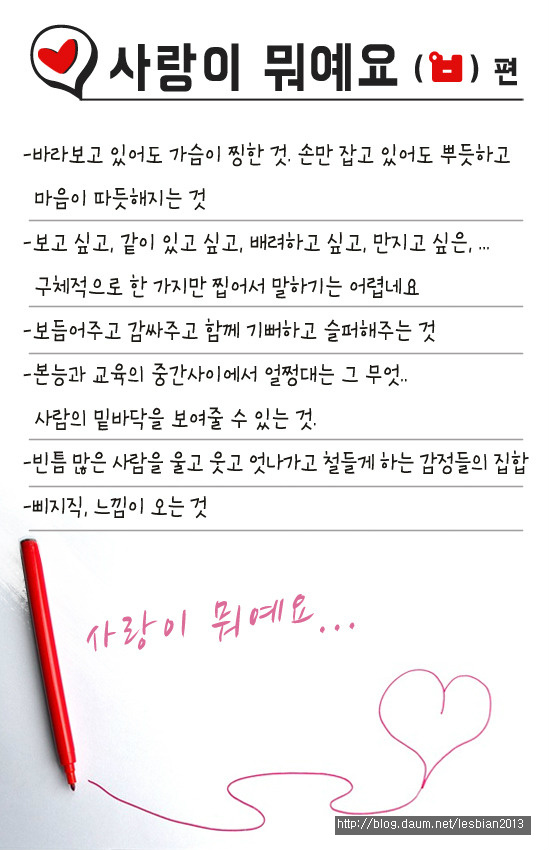 사랑이 뭐예요 (ㅂ) 편
-바라보고 있어도 가슴이 찡한 것. 손만 잡고 있어도 뿌듯하고
마음이 따듯해지는 것
-보고 싶고, 같이 있고 싶고, 배려하고 싶고, 만지고 싶은, ...
구체적으로 한 가지만 찝어서 말하기는 어렵네요
-보듬어주고 감싸주고 함께 기뻐하고 슬퍼해주는 것
-본능과 교육의 중간사이에서 얼쩡대는 그 무엇..
사람의 밑바닥을 보여줄 수 있는 것.
-빈틈 많은 사람을 울고 웃고 엇나가고 철들게 하는 감정들의 집합
-삐지직, 느낌이 오는 것
사랑이 뭐예요...
http://blog.daum.net/lesbian2013